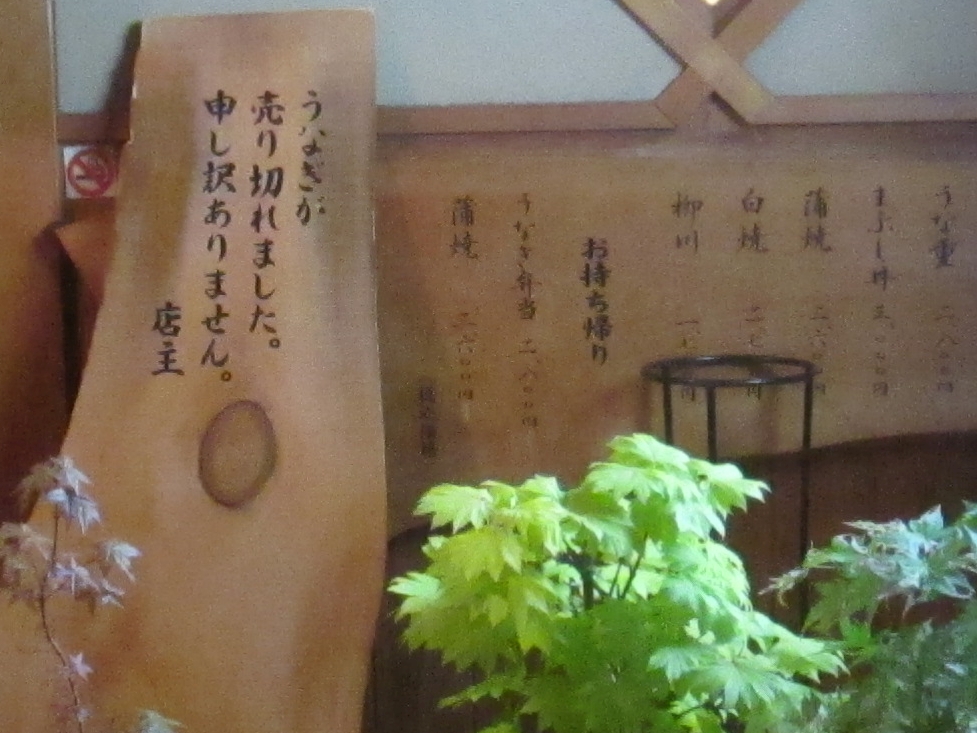 うなぎが
売り切れました。
申し訳ありません。
店主
うな重 二、八〇〇円
まぶし丼 三、〇〇〇円
蒲焼 二、六〇〇円
白焼
柳川
お持ち帰り
うなぎ弁当 二、八〇〇円
蒲焼 二、六〇〇円